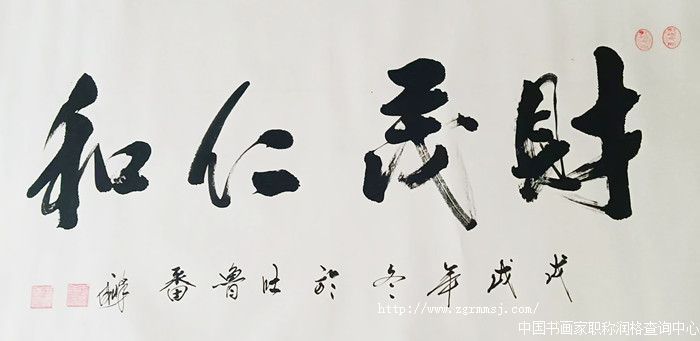 財茂仁和
戊戌年冬於吐魯番
http://www.zgrmmsj.com/
中国书画家职称润格查询中心